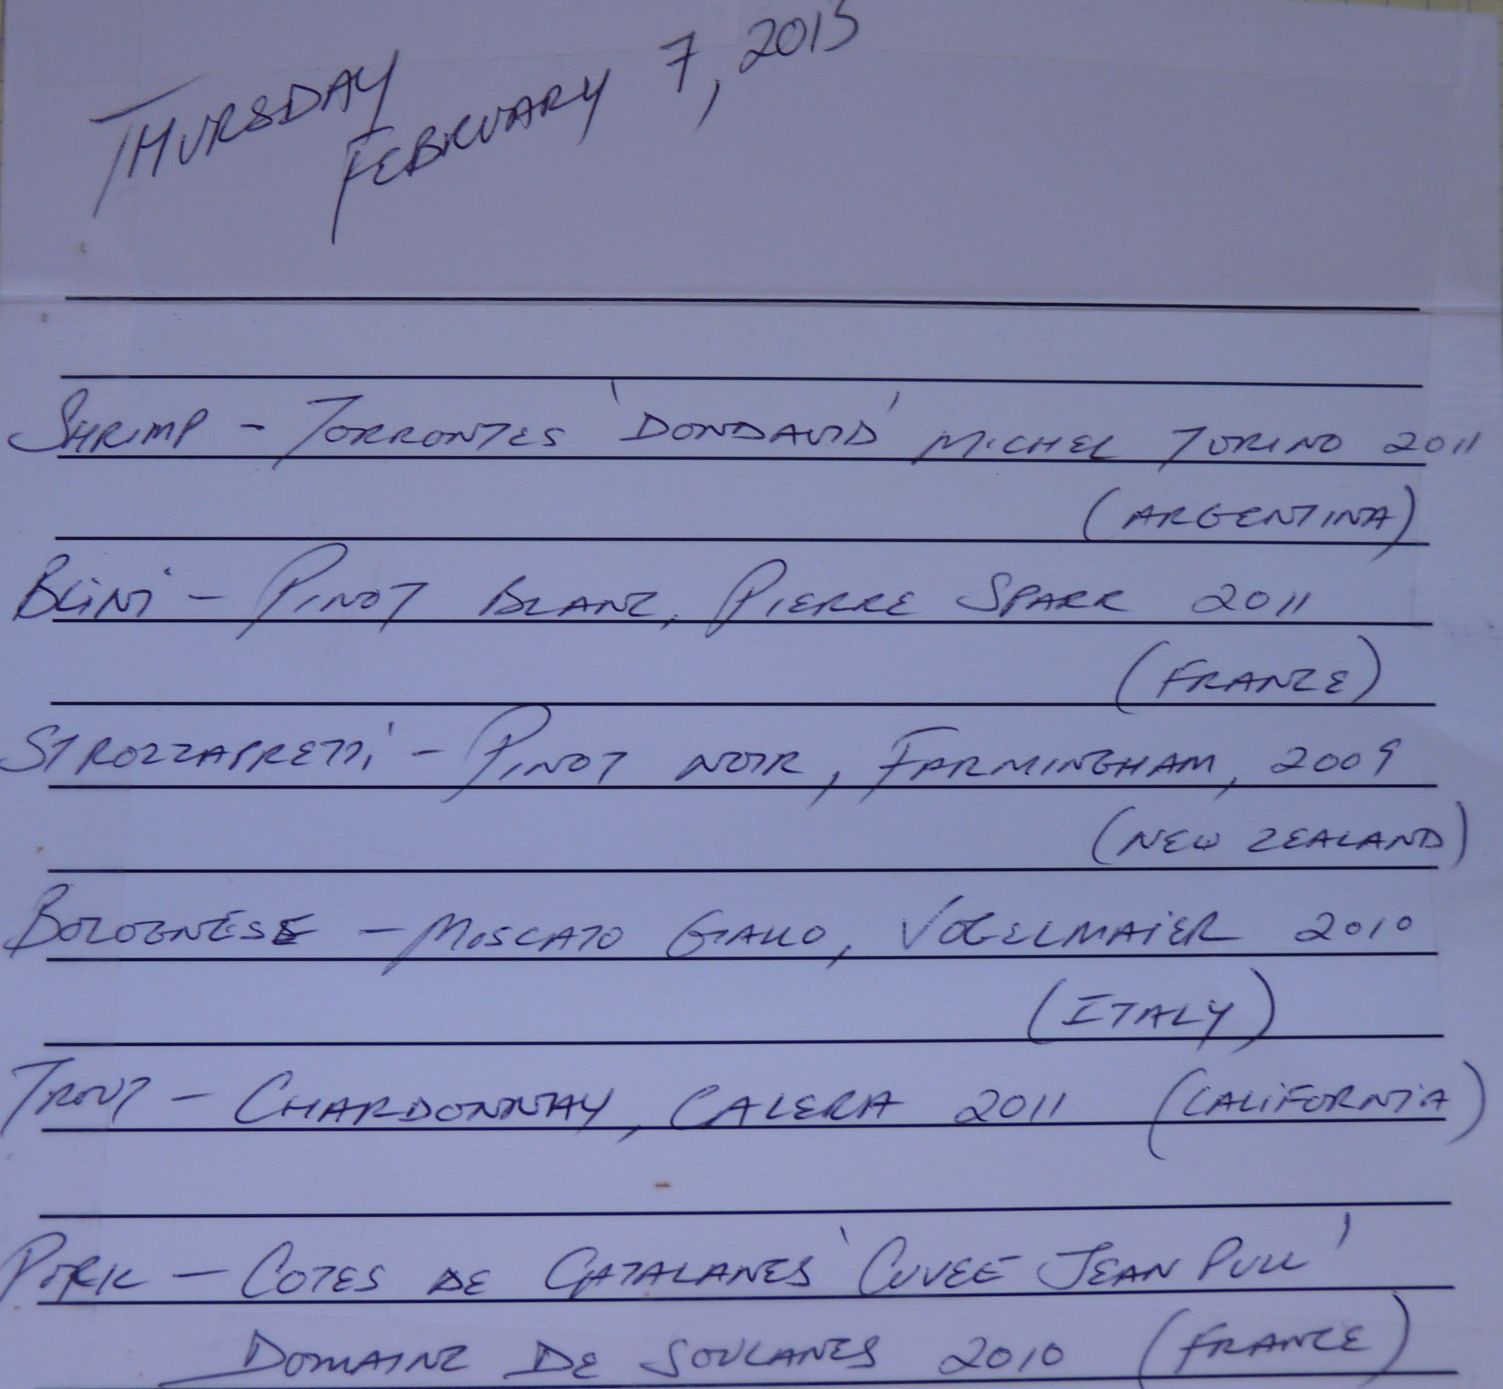 THURSDAY
FEBRUARY 7, 2013
SHRIMP - TORRONTES 'DONDAVID' MICHEL TORINO 2011
(ARGENTINA)
BLINI - PINOT BLANC, PIERRE SPARR 2011
(FRANCE)
STROZZAPRETTI - PINOT NOIR, FARMINGHAM, 2009
(NEW ZEALAND)
BOLOGNESE - MOSCATO GIALLO, VOGELMAIER 2010
(ITALY)
TROUT - CHARDONNAY, CALERA 2011 (CALIFORNIA)
PORK - COTES DE CATALANES 'CUVEE JEAN PULL'
DOMAINE DE SOULANES 2010 (FRANCE)